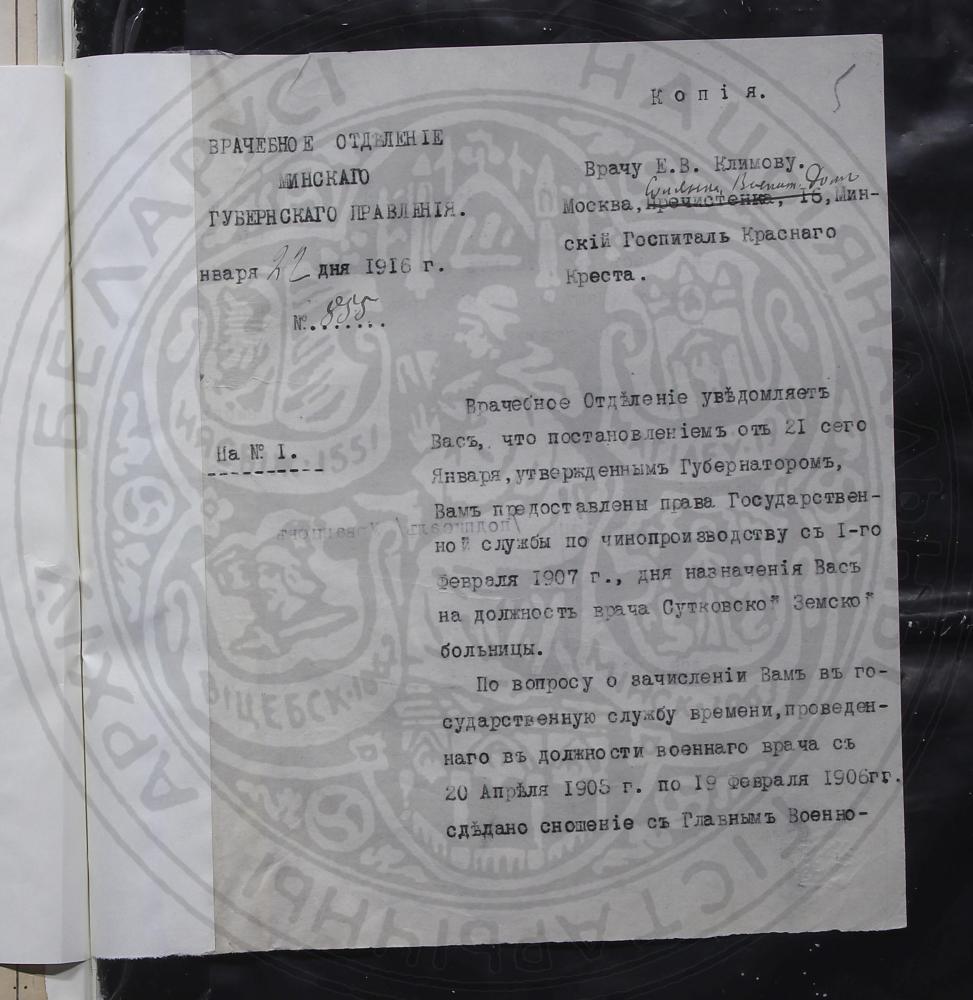 Копія.
5
ВРАЧЕБНОЕ ОТДѢЛЕНІЕ
МИНСКАГО
ГУБЕРНСКАГО ПРАВЛЕНІЯ.
нваря 22 дня 1916 г.
№. 855
Врачу Е.В. Климову.
Москва, Пречистенка, 16, Мин-
скій Госпиталь Краснаго
Креста.
На № I.
Врачебное Отдѣленіе увѣдомляетъ
Васъ, что постановленіемъ отъ 21 сего
Января, утвержденнымъ Губернаторомъ,
Вамъ предоставлены права Государствен-
ной службы по чинопроизводству съ I-го
Февраля 1907 г., дня назначенія Васъ
на должность врача Сутковской Земской
больницы.
По вопросу о зачисленіи Вамъ въ го-
сударственную службу времени, проведен-
наго въ должности военнаго врача съ
20 Апрѣля 1905 г. по 19 Февраля 1906гг.
сдѣдано сношеніе съ Главнымъ Военно-
АРХІЎ БЕЛАРУСІ
НАЦЫЯНАЛЬНЫ ГІСТАРЫЧНЫ